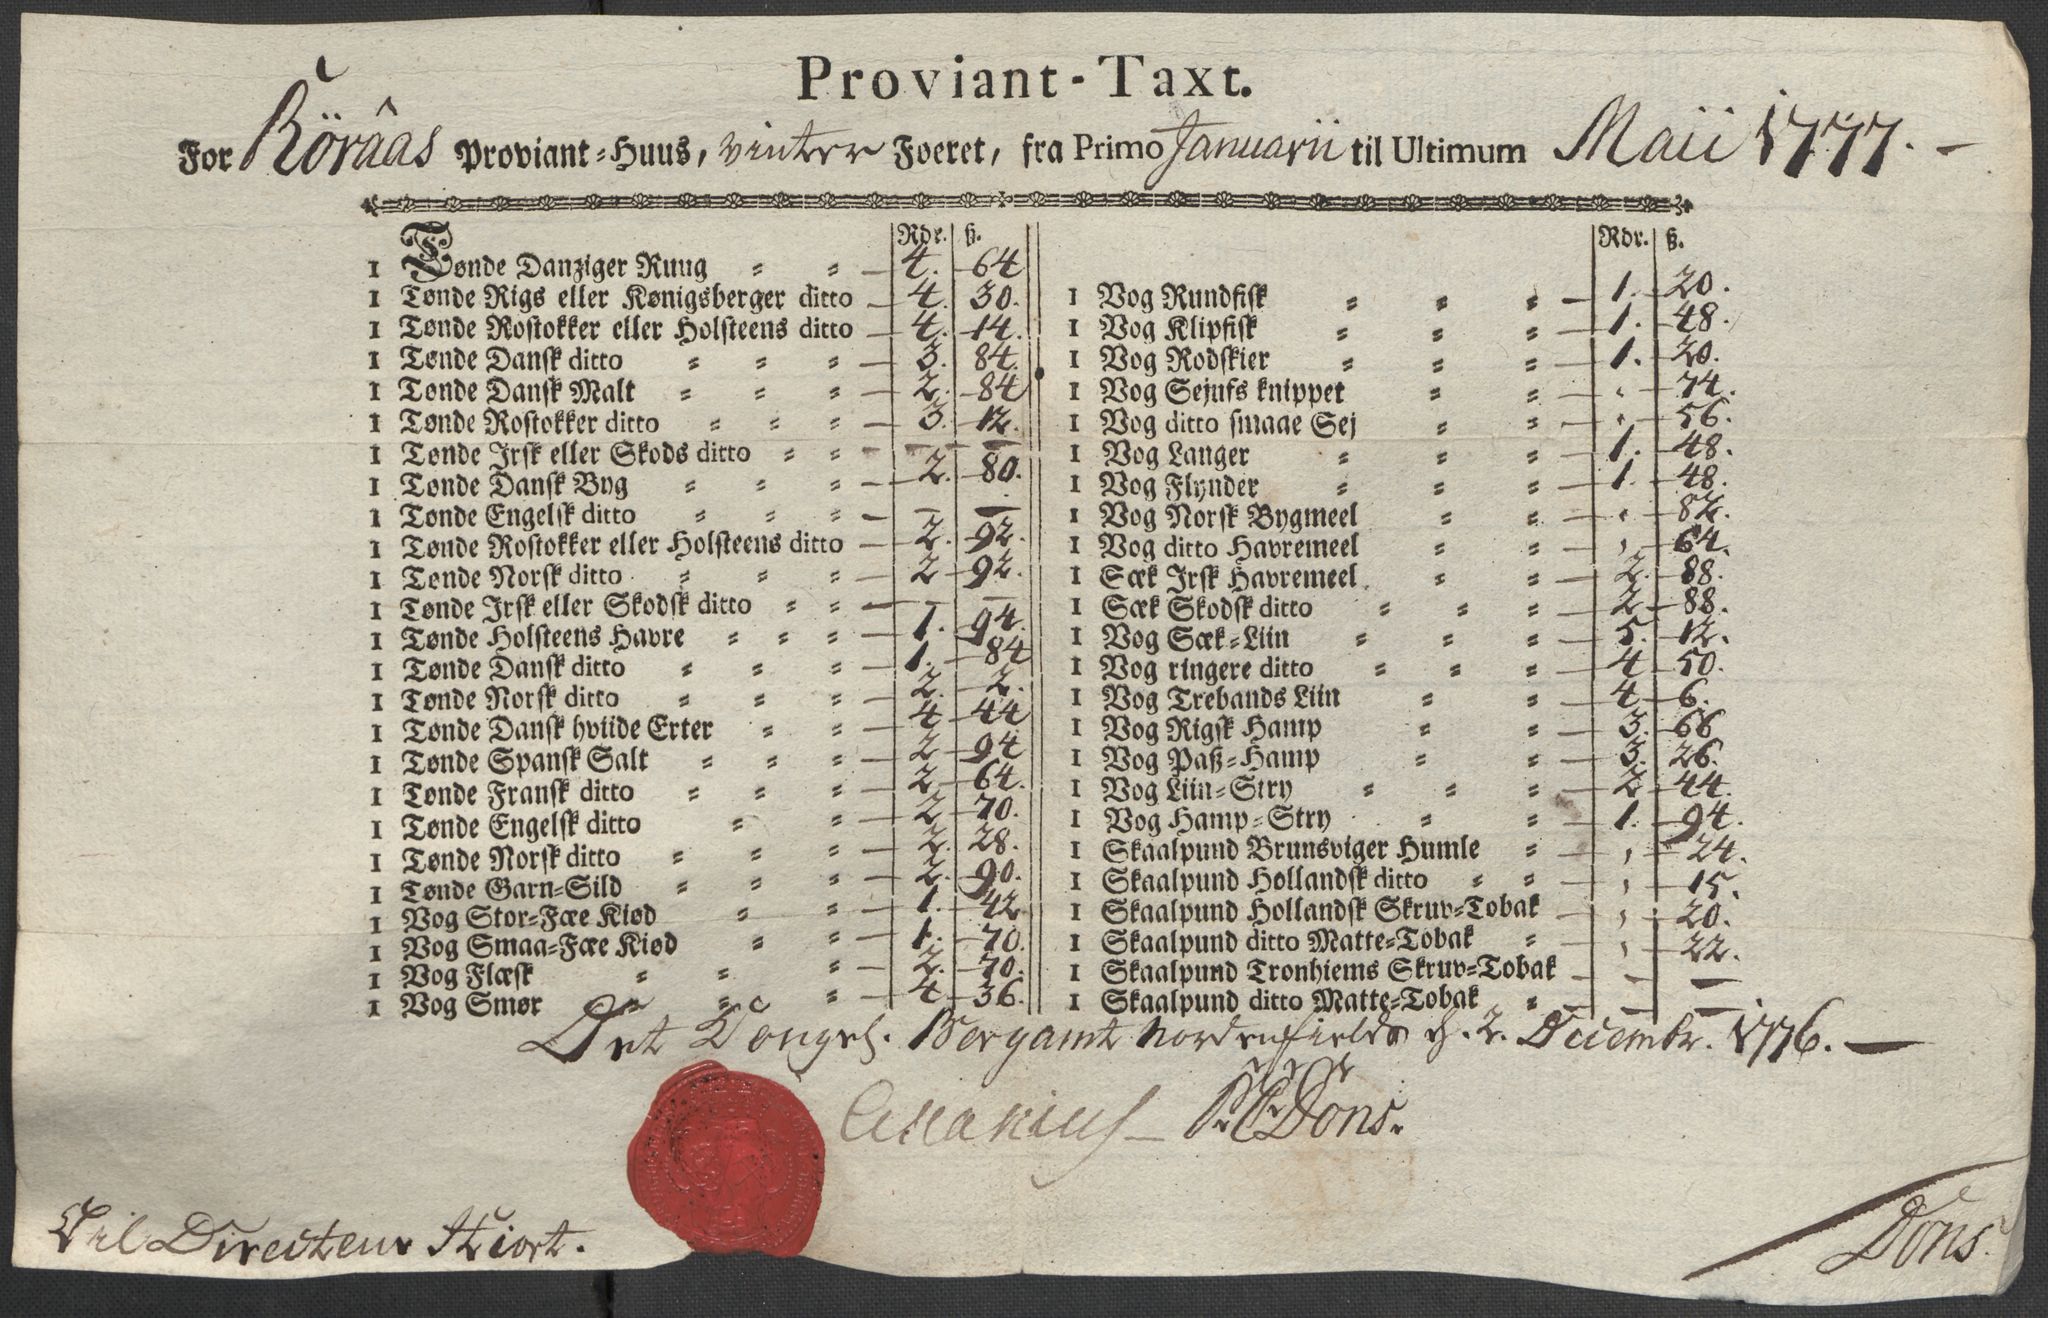 Proviant-Taxt.
For Röraas Proviant-Huus, vinter Foeret, fra Primo Januarii til Ultimum Maii 1777.
Rdr. ß.
1 Tønde Danziger Ruug 4. 64
1 Tønde Rigs eller Kønigsberger ditto 4. 30.
1 Tønde Rostokker eller Holsteens ditto 4. 14.
1 Tønde Dansk ditto 3. 84.
1 Tønde Dansk Malt 2. 84
1 Tønde Rostokker ditto 3. 12.
1 Tønde Irsk eller Skods ditto — —
1 Tønde Dansk Byg 2. 80.
1 Tønde Engelsk ditto — —
1 Tønde Rostokker eller Holsteens ditto 2. 92.
1 Tønde Norsk ditto 2 92.
1 Tønde Irsk eller Skodsk ditto — —
1 Tønde Holsteens Havre 1. 94.
1 Tønde Dansk ditto 1. 84
1 Tønde Norsk ditto 2. 2.
1 Tønde Dansk hviide Erter 4 44
1 Tønde Spansk Salt 2 94
1 Tønde Fransk ditto 2 64.
1 Tønde Engelsk ditto 2 70.
1 Tønde Norsk ditto 2. 28.
1 Tønde Garn-Sild 2. 90.
1 Vog Stor-Fæe Kiød 1. 42
1 Vog Smaa-Fæe Kiød 1. 70.
1 Vog Flæsk 2. 70.
1 Vog Smør 4 36.
Rdr. ß.
1 Vog Rundfisk 1. 20.
1 Vog Klipfisk 1. 48.
1 Vog Rodskier 1. 20.
1 Vog Sejufs knippet 74.
1 Vog ditto smaae Sej 56.
1 Vog Langer 1. 48.
1 Vog Flynder 1. 48.
1 Vog Norsk Bygmeel 82.
1 Vog ditto Havremeel 64.
1 Sæk Irsk Havremeel 2. 88.
1 Sæk Skodsk ditto 2 88.
1 Vog Sæk-Liin 5. 12.
1 Vog ringere ditto 4 50.
1 Vog Trebands Liin 4 6.
1 Vog Rigsk Hamp 3. 66
1 Vog Paß-Hamp 3. 26.
1 Vog Liin-Stry 2 44.
1 Vog Hamp-Stry 1. 94.
1 Skaalpund Brunsviger Humle 24.
1 Skaalpund Hollandsk ditto 15.
1 Skaalpund Hollandsk Skruv-Tobak 20.
1 Skaalpund ditto Matte-Tobak 22.
1 Skaalpund Tronhiems Skruv-Tobak — —
1 Skaalpund ditto Matte-Tobak — —
Det Kongel. Bergamt Nordenfields d. 2. Decembr. 1776.
Dons.
Til Directeur Hiort.
Dons.